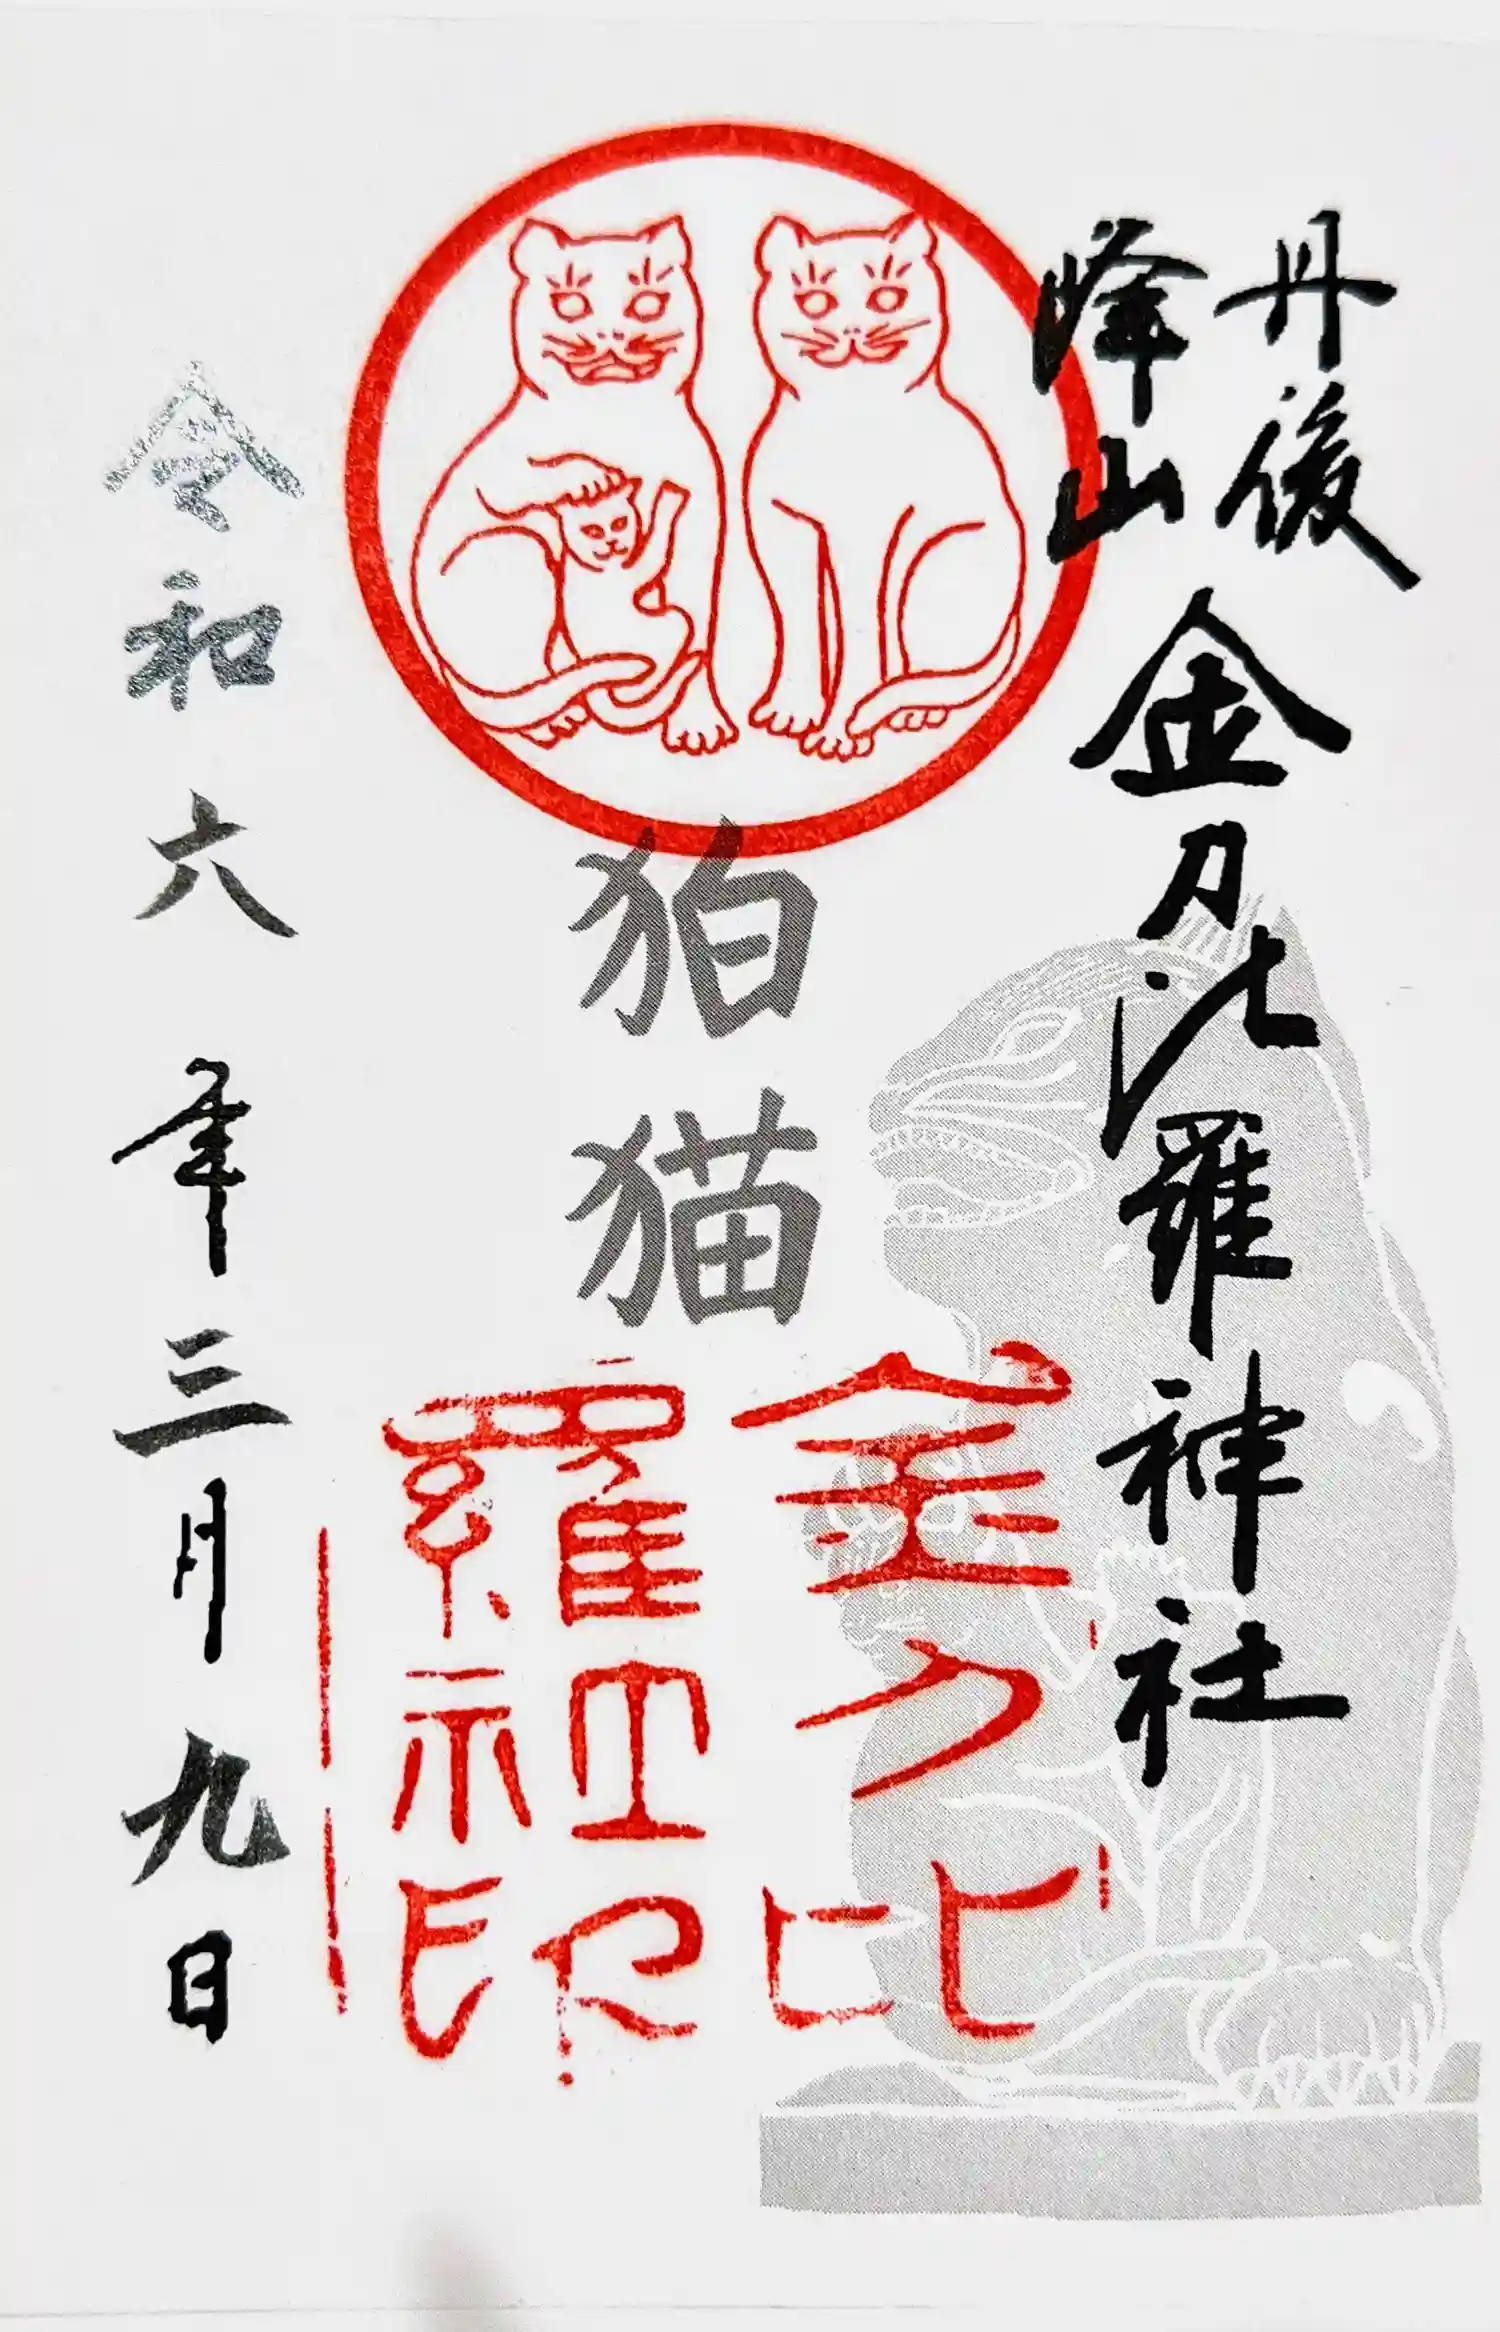 丹後
峰山
金刀比羅神社
狛猫
金刀比
羅神社印
令和六年三月九日